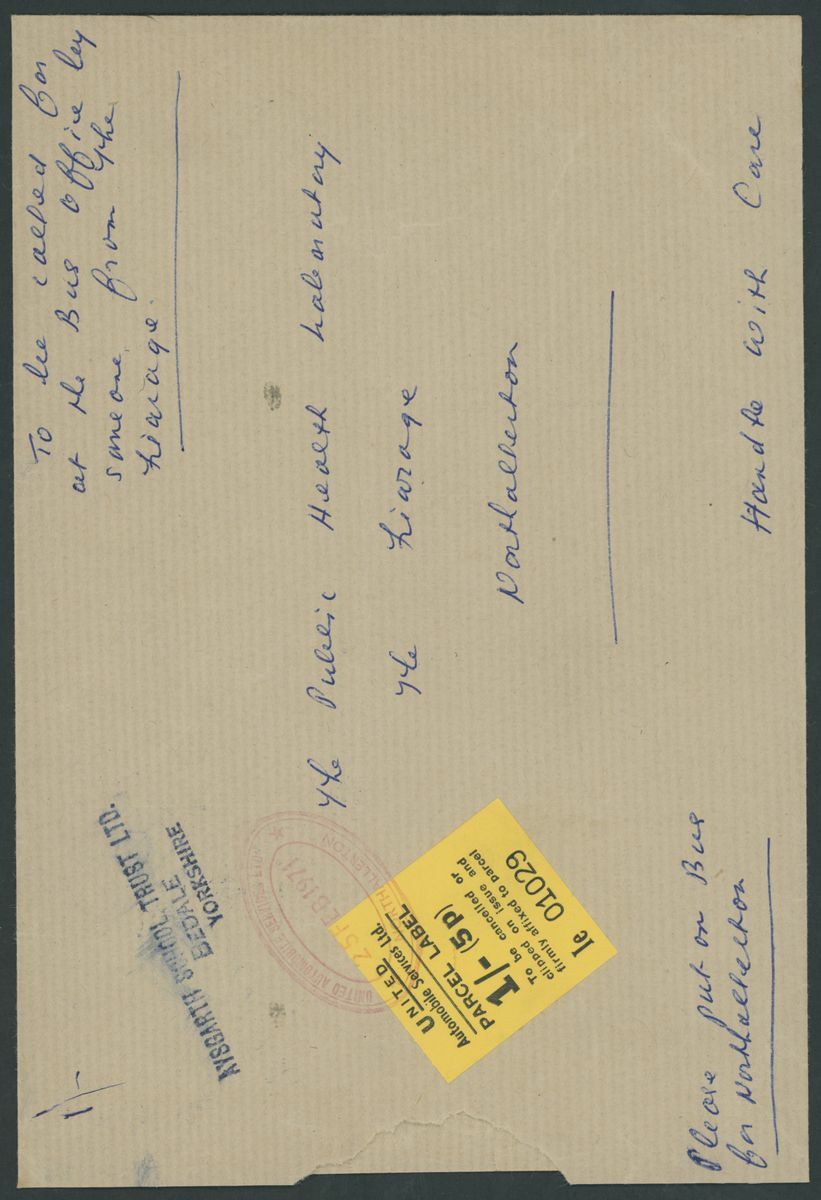 To be called for
at the Bus Office by
someone from the
Friarage.
The Public Health Laboratory
The Friarage
Northallerton
Handle with Care
Please put on Bus
for Northallerton
1/-
AYSGARTH SCHOOL TRUST LTD.
BEDALE
YORKSHIRE
UNITED AUTOMOBILE SERVICES
25 FEB 1971
NORTHALLERTON
UNITED
Automobile Services Ltd.
PARCEL LABEL
1/- (5p)
To be cancelled or
clipped on issue and
firmly affixed to parcel
Ie 01029